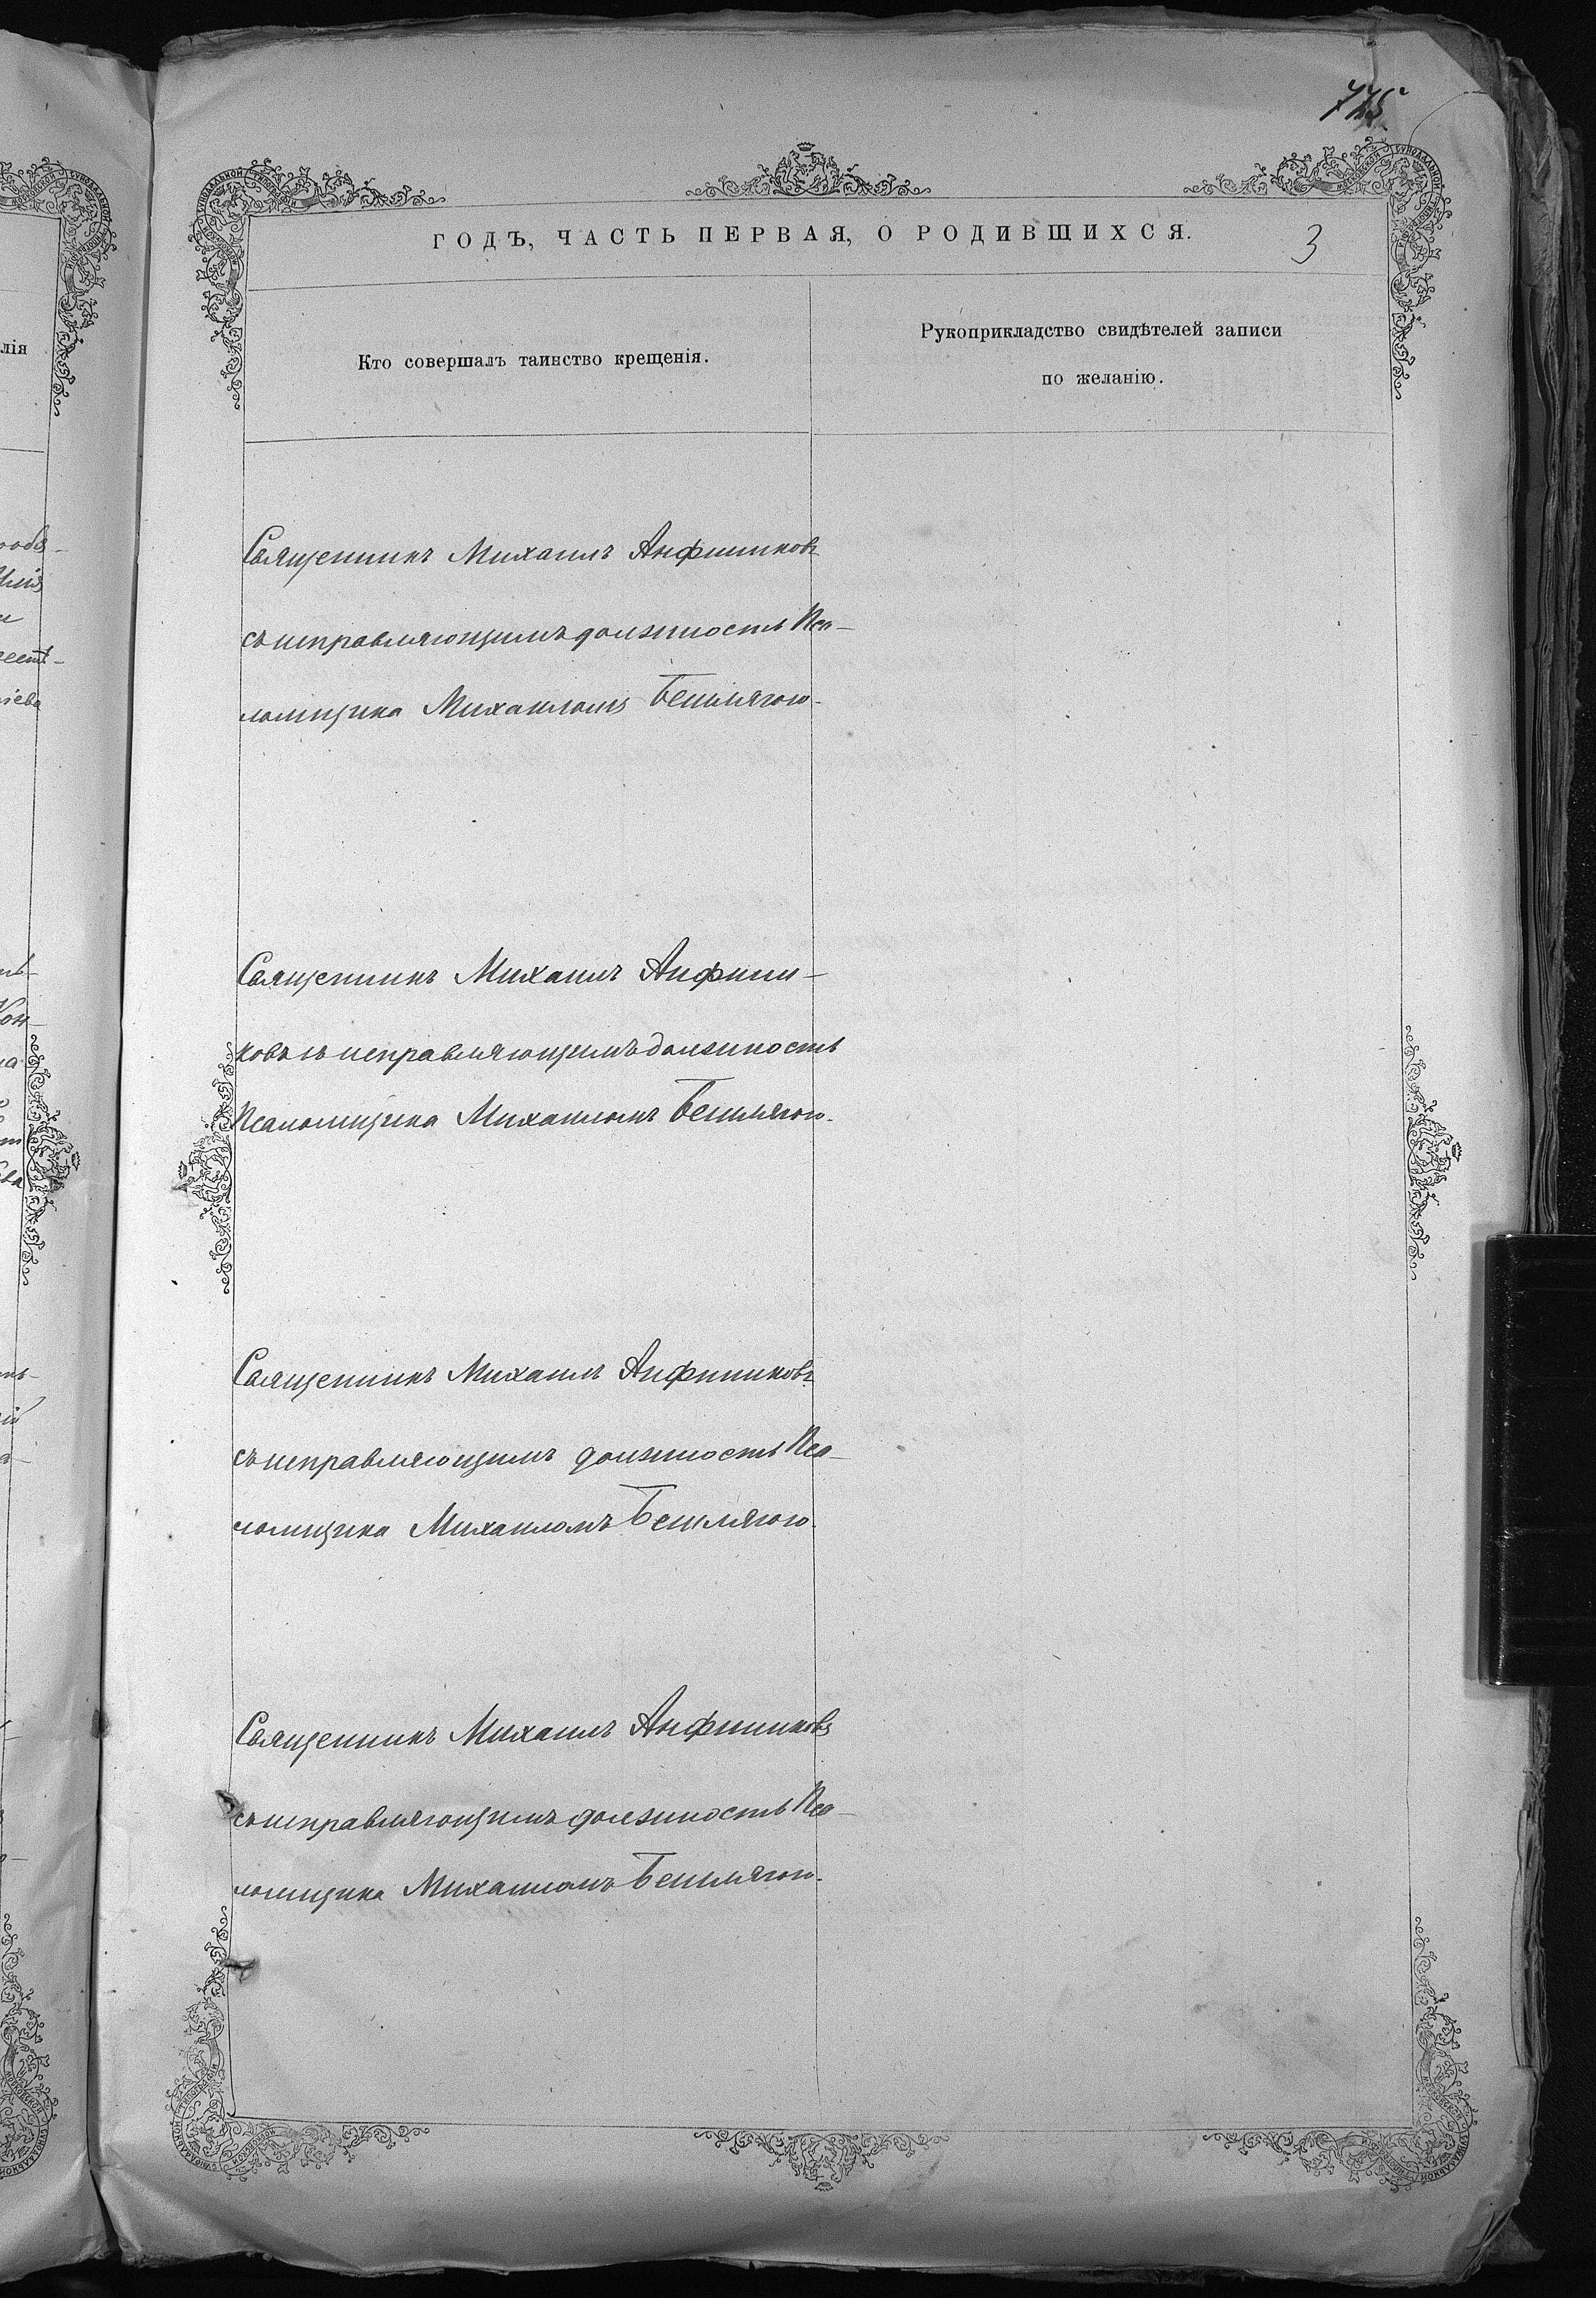 ГОДЪ, ЧАСТЬ ПЕРВАЯ, О РОДИВШИХСЯ.
3
Кто совершалъ таинство крещенія.
Рукоприкладство свидѣтелей записи
по желанію.
лія
Священникъ Михаилъ Анфиниковъ
съ исправляющимъ должность Пса-
ломщика Михаиломъ
Священникъ Михаилъ Анфини-
ковъ съ исправляющимъ должность
Псаломщика Михаиломъ
Священникъ Михаилъ Анфиниковъ
съ исправляющимъ должность Пса-
ломщика Михаиломъ
Священникъ Михаилъ Анфиниковъ
съ исправляющимъ должность Пса-
ломщика Михаиломъ